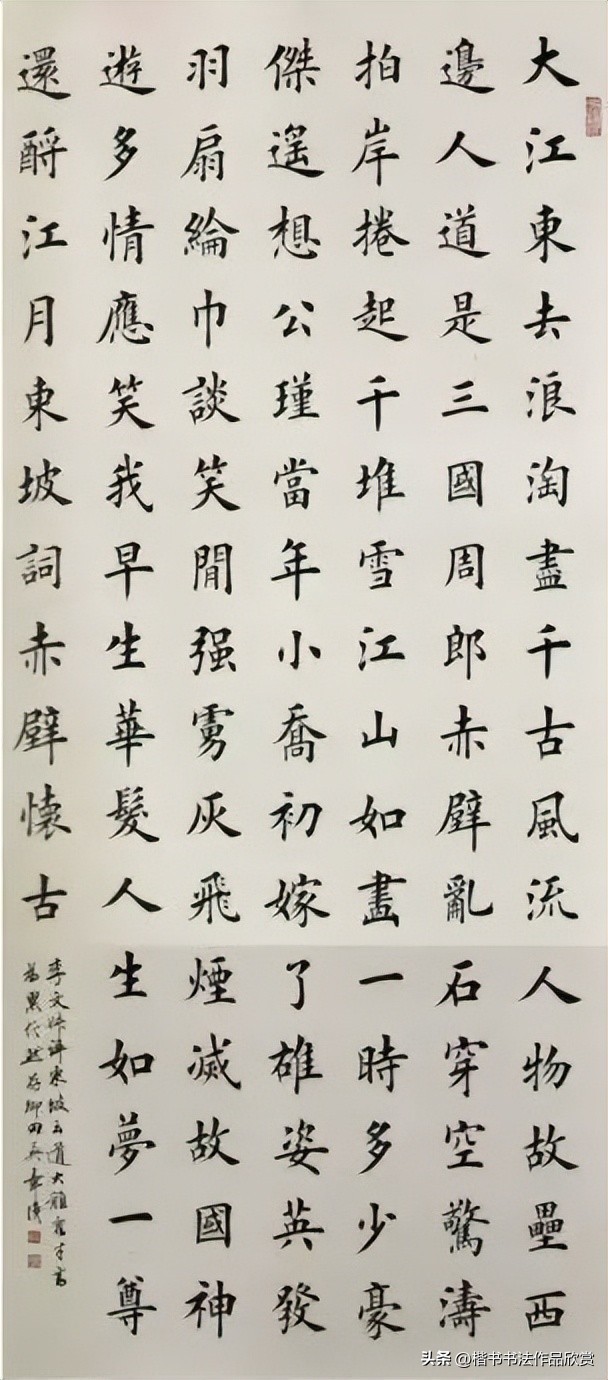 大江東去浪淘盡千古風流人物故壘西
邊人道是三國周郎赤壁亂石穿空驚濤
拍岸捲起千堆雪江山如畫一時多少豪
傑遙想公瑾當年小喬初嫁了雄姿英發
羽扇綸巾談笑間强虜灰飛煙滅故國神
遊多情應笑我早生華髮人生如夢一尊
還酹江月東坡詞赤壁懷古
坡云道大難容才高
為累
头条 @楷书书法作品欣赏